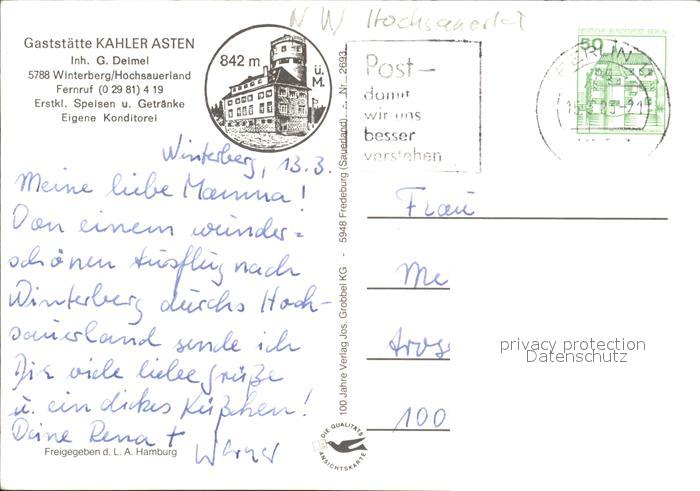 N W Hochsauerlal
Gaststätte KAHLER ASTEN
Inh. G. Deimel
5788 Winterberg/Hochsauerland
Fernruf (0 29 81) 4 19
Erstkl. Speisen u. Getränke
Eigene Konditorei
842 m
ü.
M.
Winterberg, 13.3.
Meine liebe Mamma!
Von einem wunder=
schönen Ausflug nach
Winterberg durchs Hoch-
sauerland sende ich
Dir viele liebe Grüße
u. ein dickes Küßchen!
Deine Rena + Werner
Freigegeben d. L. A. Hamburg
100 Jahre Verlag Jos. Grobbel KG - 5948 Fredeburg (Sauerland) - Nr. 2693
DIE QUALITÄTS
ANSICHTSKARTE
Post-
damit
wir uns
besser
verstehen
DEUTSCHE BUNDESPOST BERLIN
50
BERLIN
Frau
Me
tros
100
privacy protection
Datenschutz